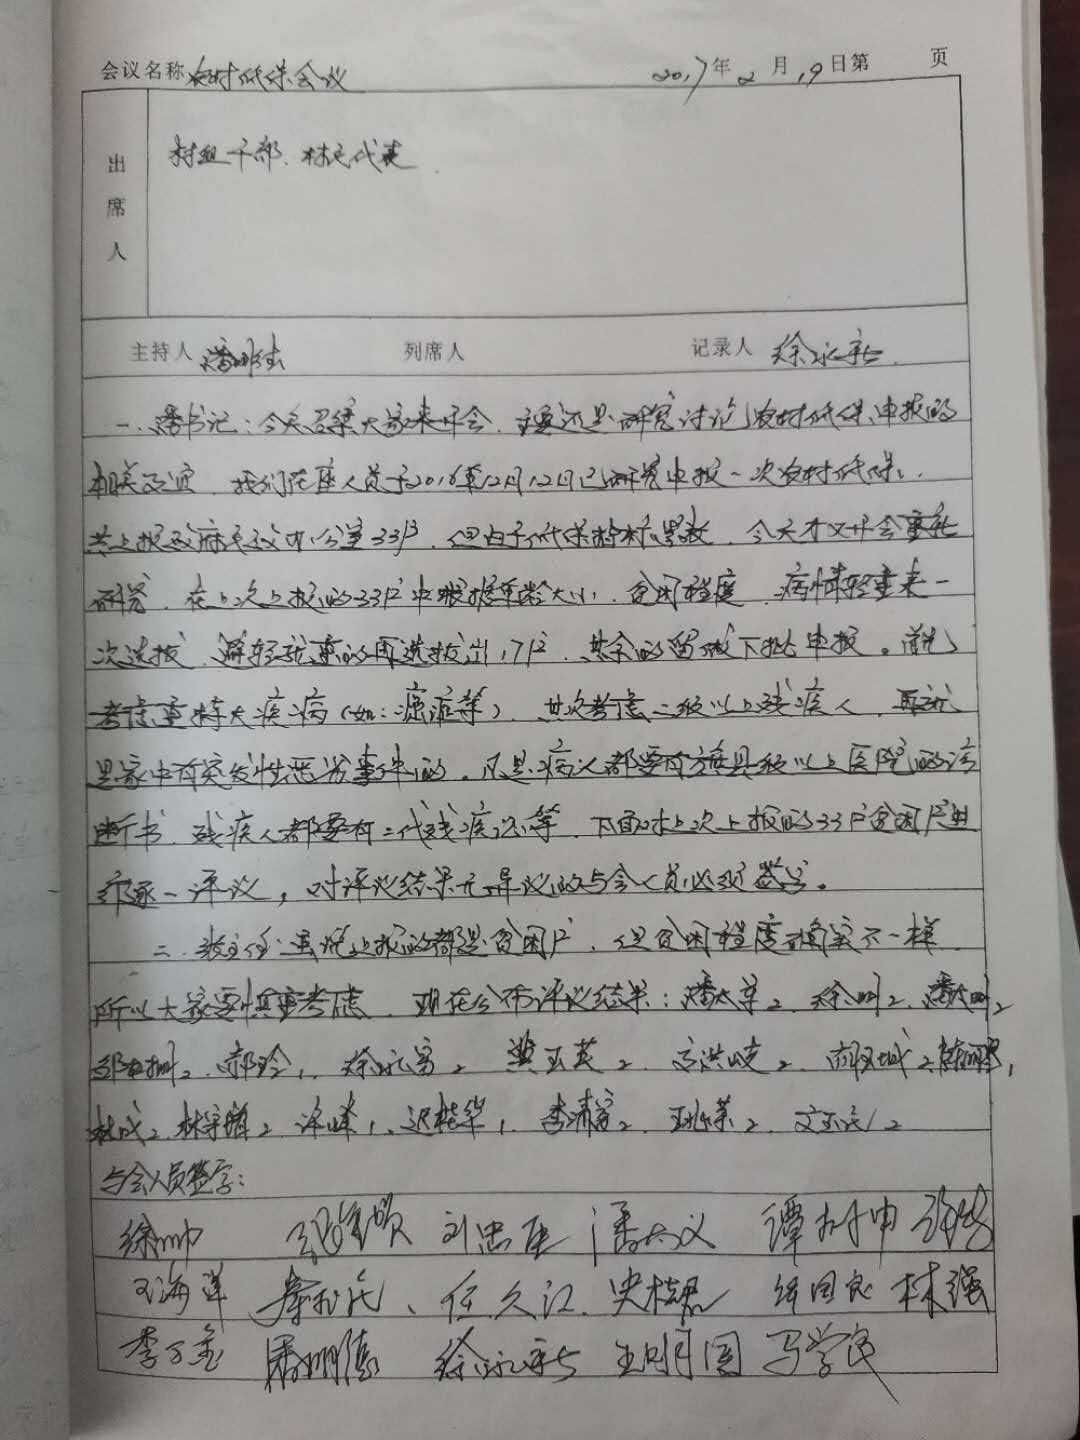 会议名称 农村低保会议 2017年2月19日第 页
出席人
村组干部、村民代表
主持人 潘明德 列席人 记录人 徐永新
一、潘书记：今天召集大家来开会，主要还是研究讨论农村低保申报的
相关事宜，我们在座人员于2016年12月12日已研究申报一次农村低保，
共上报政府民政办公室33户，但由于低保指标累数，今天才又开会重新
研究，在上次上报的33户中根据年龄大小，贫困程度，病情轻重来一
次选拔，避轻就重的再选拔出17户，其余的留做下批申报。首先
考虑重特大疾病（如：癌症等），其次考虑二级以上残疾人，再就
是家中有突发性恶劣事件的。凡是病人都要有旗县级以上医院的诊
断书，残疾人都要有二代残疾证等，下面对上次上报的33户贫困户进
行逐一评议，对评议结果无异议的与会人员必须签字。
二、主任：虽说上报的都是贫困户，但贫困程度确实不一样
所以大家要慎重考虑，现在公布评议结果：潘太苹2、徐明2、潘太明2
邹 2、郝玲1、徐永富2、樊玉英2、高洪岐2、 城2、 1、
林成2、林宇 2、泽峰1、迟桂华1、李清富2、 荣2、文玉 2
与会人员签字：
徐帅 刘忠臣 潘太义 谭树申
王海洋 秦 、任久江 史桂君 国良 林强
李万金 潘明德 徐永新 王明国 马学民